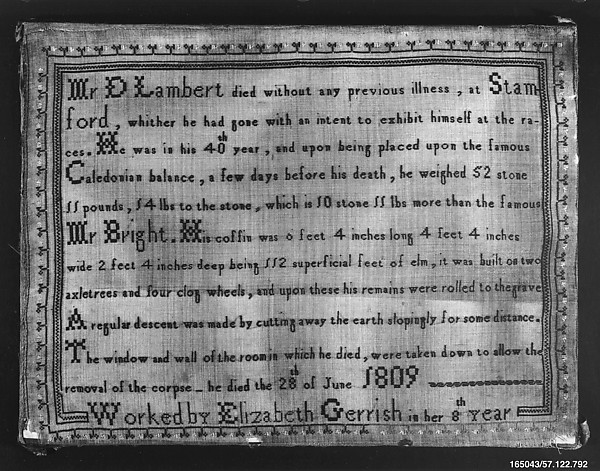 Mr D Lambert died without any previous illness, at Stam-
ford, whither he had gone with an intent to exhibit himself at the ra-
ces. He was in his 40th year, and upon being placed upon the famous
Caledonian balance, a few days before his death, he weighed 52 stone
11 pounds, 14 lbs to the stone, which is 10 stone 11 lbs more than the famous
Mr Bright. His coffin was 6 feet 4 inches long 4 feet 4 inches
wide 2 feet 4 inches deep being 112 superficial feet of elm, it was built on two
axletrees and four clog wheels, and upon these his remains were rolled to the grave
A regular descent was made by cutting away the earth slopingly for some distance.
The window and wall of the room in which he died, were taken down to allow the
removal of the corpse_ he died the 28th of June 1809
Worked by Elizabeth Gerrish in her 8th year
165043/57.122.792